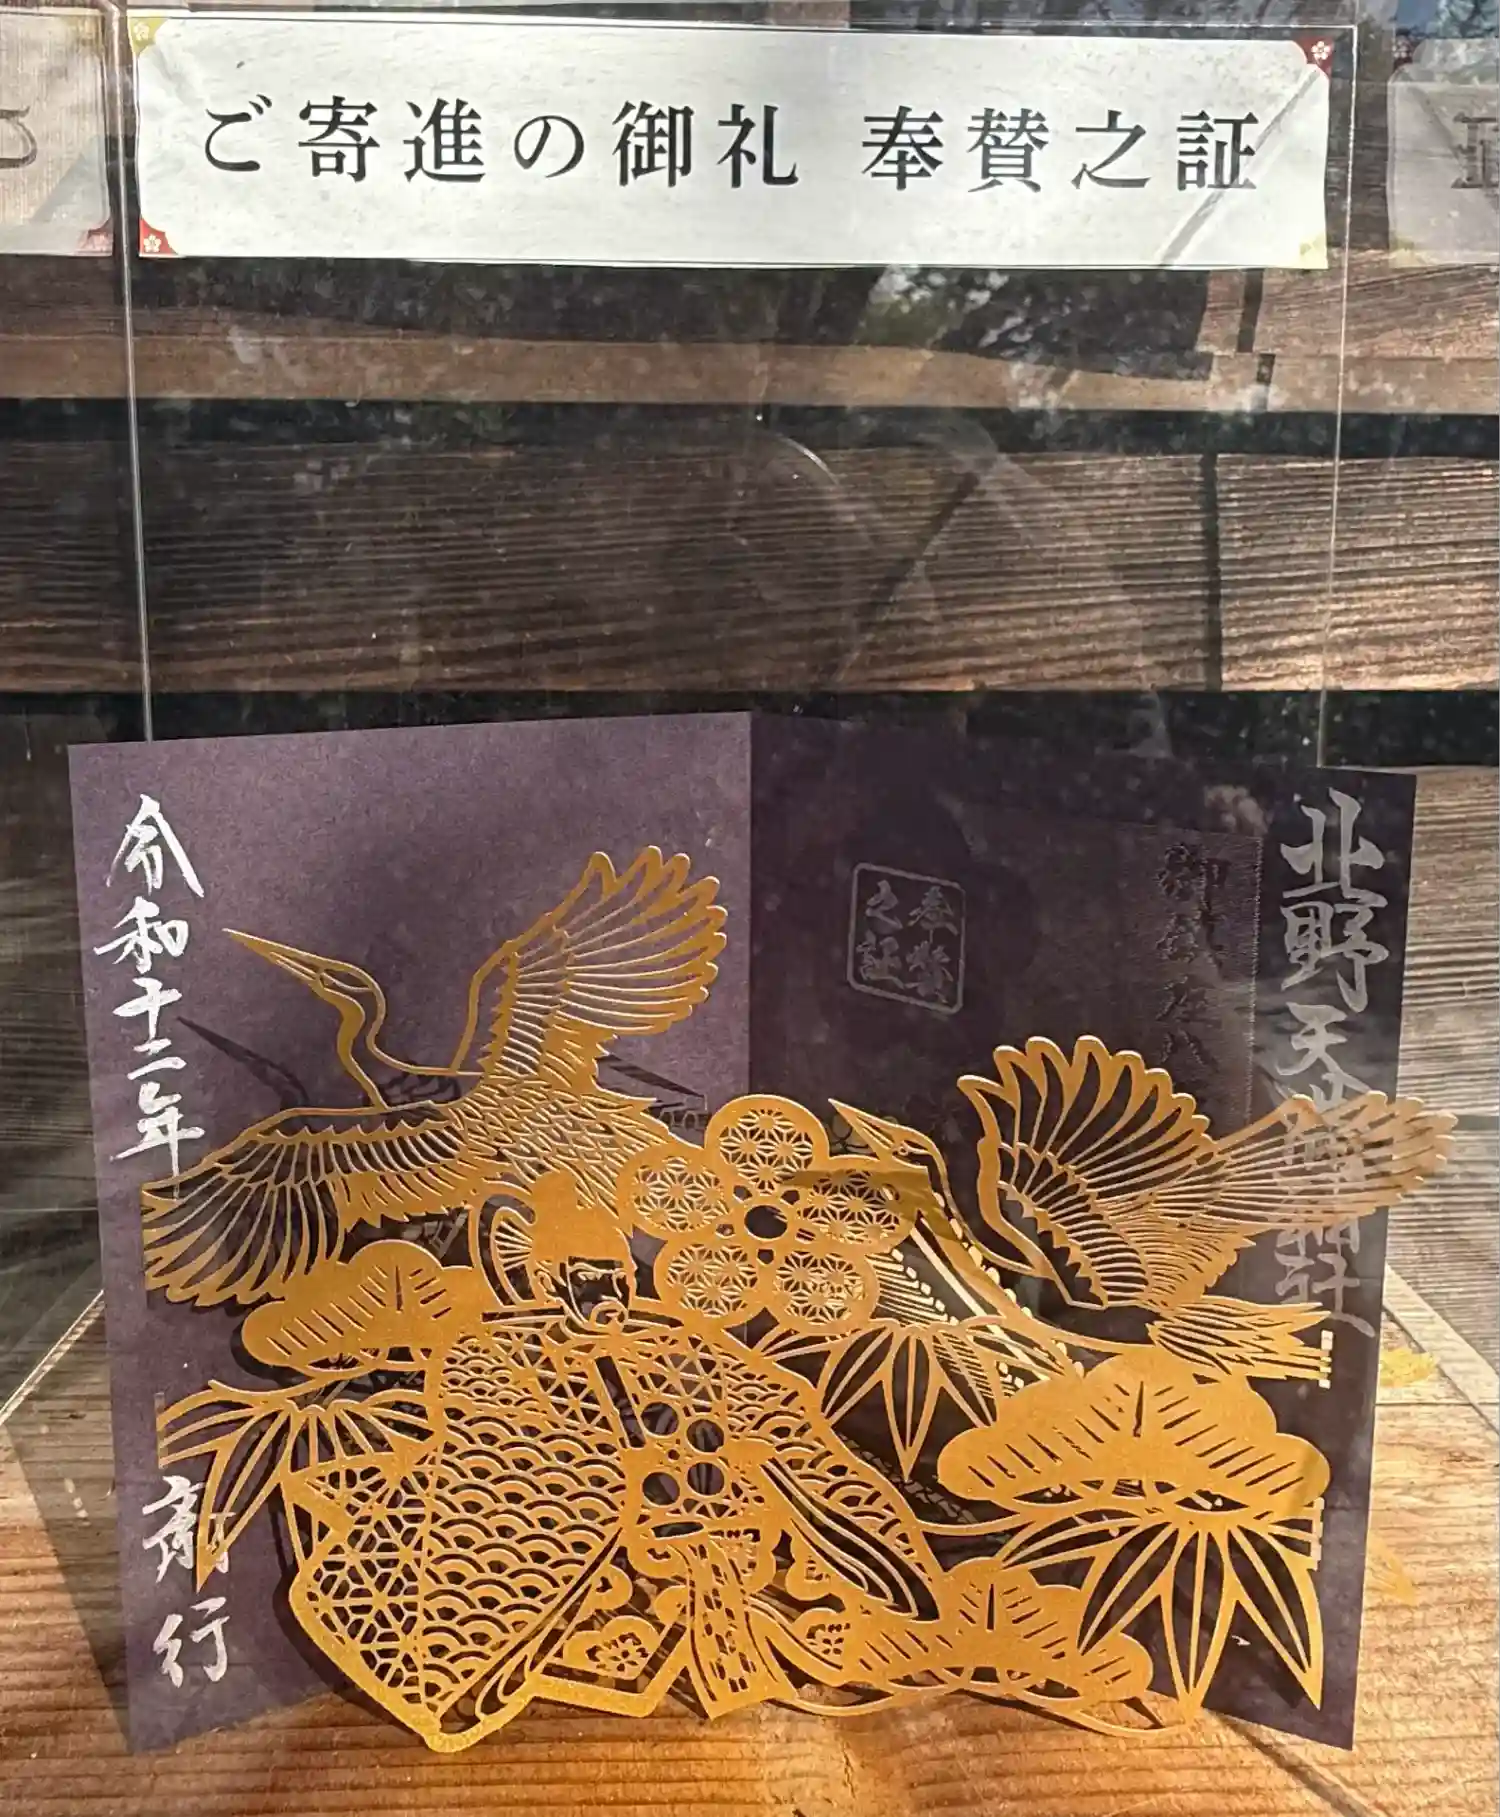 ご寄進の御礼 奉賛之証
北野天満宮
奉賛
之証
令和十二年
斎行